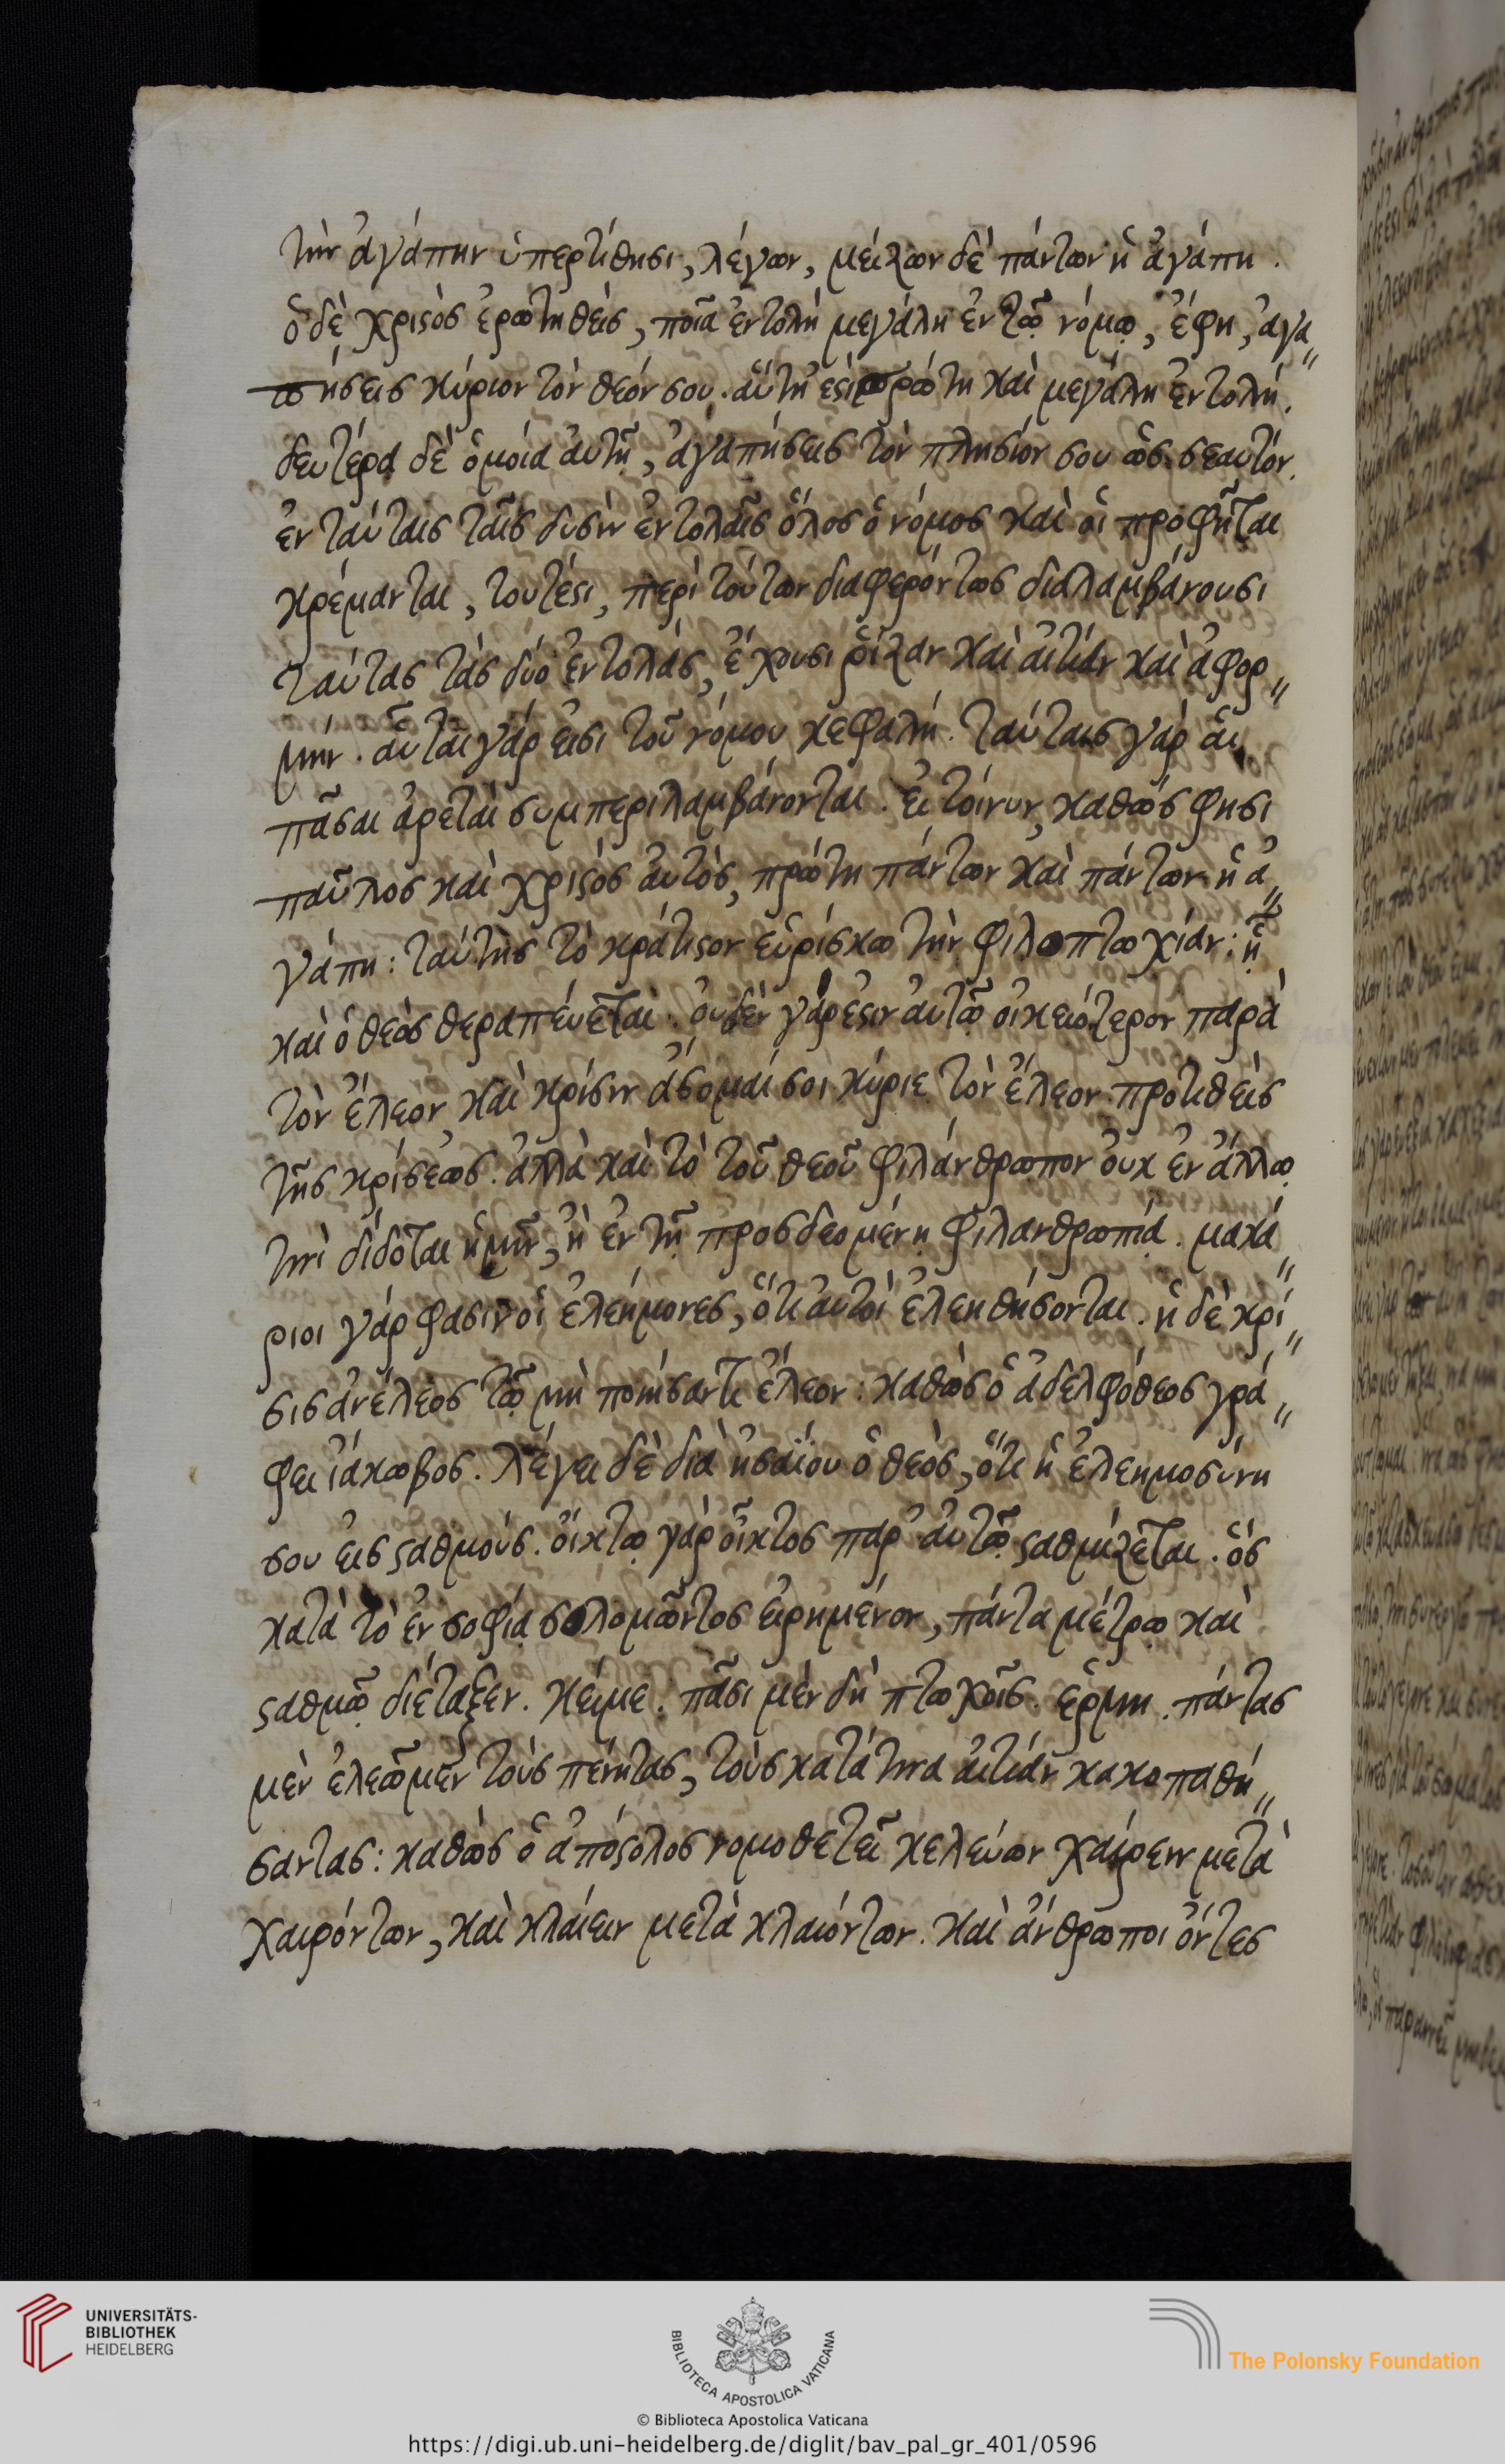 τὴν ἀγάπην ὑπερτίθησι, λέγων, μείζων δὲ πάντων ἡ ἀγάπη.
ὁ δὲ χριστὸς ἐρωτηθεὶς, ποία ἐντολὴ μεγάλη ἐν τῷ νόμῳ, ἔφη, ἀγα
πήσεις κύριον τὸν θεόν σου. αὕτη ἐστὶ πρώτη καὶ μεγάλη ἐντολή.
δευτέρα δὲ ὁμοία αὐτῇ, ἀγαπήσεις τὸν πλησίον σου ὡς σεαυτόν.
ἐν ταύταις ταῖς δυσὶν ἐντολαῖς ὅλος ὁ νόμος καὶ οἱ προφῆται
κρέμανται, τουτέστι, περὶ τούτων διαφερόντως διαλαμβάνουσι
ταύτας τὰς δύο ἐντολὰς, ἔχουσι ῥίζαν καὶ αἰτίαν καὶ ἀφορ
μήν. αὗται γάρ εἰσι τοῦ νόμου κεφαλή. ταύταις γὰρ αἱ
πᾶσαι ἀρεταὶ συμπεριλαμβάνονται. εἰ τοίνυν, καθώς φησι
παῦλος καὶ χριστὸς αὐτὸς, πρώτη πάντων καὶ πάντων ἡ ἀ
γάπη: ταύτης τὸ κράτιστον εὑρίσκω τὴν φιλοπτωχίαν: ᾗ
καὶ ὁ θεὸς θεραπεύεται. οὐδὲν γάρ ἐστιν αὐτῷ οἰκειότερον παρὰ
τὸν ἔλεον, καὶ κρίσιν ἄσομαί σοι κύριε τὸν ἔλεον προτιθεὶς
τῆς κρίσεως. ἀλλὰ καὶ τὸ τοῦ θεοῦ φιλάνθρωπον οὐκ ἐν ἄλλῳ
τινὶ δίδοται ἡμῖν, ἢ ἐν τῇ προσδεομένῃ φιλανθρωπίᾳ. μακά
ριοι γάρ φασιν οἱ ἐλεήμονες, ὅτι αὐτοὶ ἐλεηθήσονται. ἡ δὲ κρί
σις ἀνέλεος τῷ μὴ ποιήσαντι ἔλεον: καθὼς ὁ ἀδελφόθεος γρά
φει ἰάκωβος. λέγει δὲ διὰ ἡσαΐου ὁ θεὸς, ὅτι ἡ ἐλεημοσύνη
σου εἰς σταθμούς. οἴκτῳ γὰρ οἶκτος παρ' αὐτῷ σταθμίζεται. ὃς
κατὰ τὸ ἐν σοφίᾳ σολομῶντος εἰρημένον, πάντα μέτρῳ καὶ
σταθμῷ διέταξεν. κείμε: πᾶσι μὲν δὴ πτωχοῖς. ἑρμη. πάντας
μὲν ἐλεῶμεν τοὺς πένητας, τοὺς κατά τινα αἰτίαν κακοπαθή
σαντας: καθὼς ὁ ἀπόστολος νομοθετεῖ κελεύων χαίρειν μετὰ
χαιρόντων, καὶ κλαίειν μετὰ κλαιόντων. καὶ ἄνθρωποι ὄντες
UNIVERSITÄTS-
BIBLIOTHEK
HEIDELBERG
BIBLIOTECA APOSTOLICA VATICANA
The Polonsky Foundation
© Biblioteca Apostolica Vaticana
https://digi.ub.uni-heidelberg.de/diglit/bav_pal_gr_401/0596